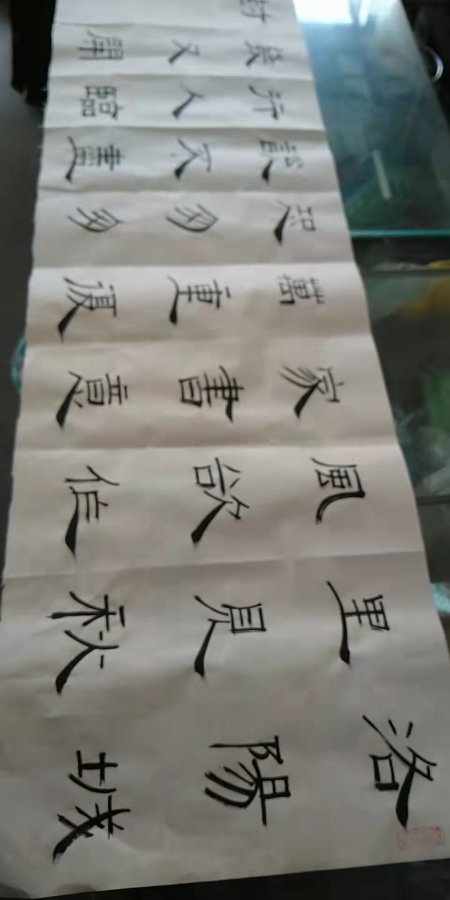 洛陽城
里見秋
風欲作
家書意
萬重復
恐匆匆
說不盡
行人臨
發又開
封